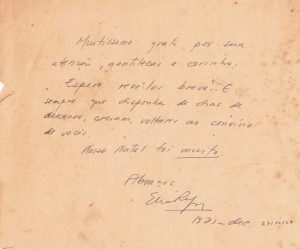 Muitissimo grato por sua
atenção, gentilezas e carinho.
Espero revê-los brevente
sempre que disponha de dias de
descanso, creiam, voltarei ao convívio
de vocês
Nosso Natal foi muito
Abraços
1971 - dec.